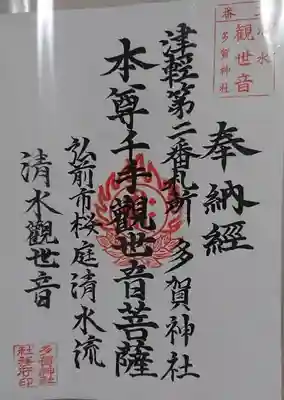 奉納経
津輕第二番札所 多賀神社
本尊千手觀世音菩薩
弘前市桜庭清水流
清水觀世音
清水
觀世音
多賀神社
多賀神社
社務所印